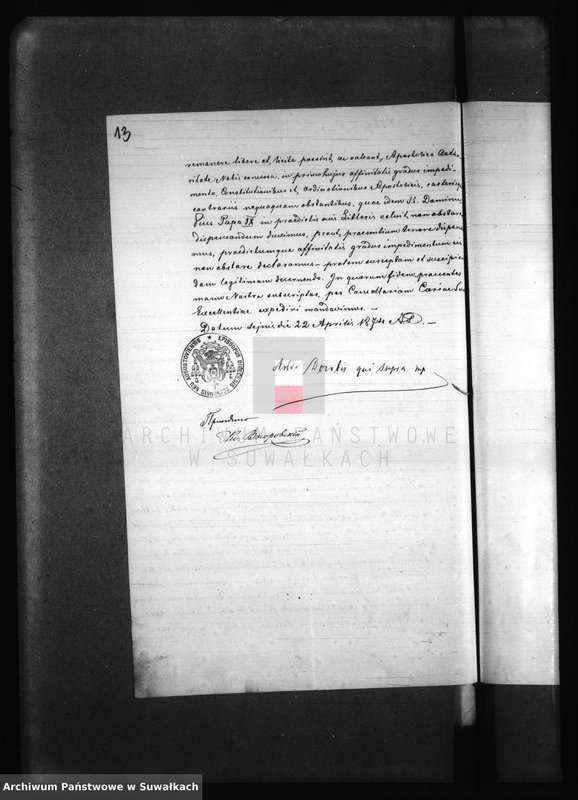 13
remanere libere et licite possint, ac valeant, Apostolica Aucto-
ritate Nobis concessa, in primo hujus affinitatis gradus impedi-
mento, Constitutionibus et ordinationibus Apostolicis, caeterisque
contrariis nequaquam obstantibus, quae idem SS. Dominus
Pius Papa IX in praedictis suis Litteris voluit, non obstare
dispensandum duximus, prout, praesentium tenore dispensa-
mus, praedictumque affinitatis gradus impedimentum eis
non obstare declaramus – prolem susceptam et suscipien-
dam legitimam decernendo. In quorum fidem praesentes
manu Nostra subscriptas, per Cancellariam Curiae Suae
Excellentiae expediri mandavimus. –
Datum Sejnis die 22 Aprilis 1874 A.D. –
EPISCOPUS
SEU AUGUSTOVIENSIS
qui supra mp
ARCHIWUM PAŃSTWOWE
W SUWAŁKACH
Archiwum Państwowe w Suwałkach